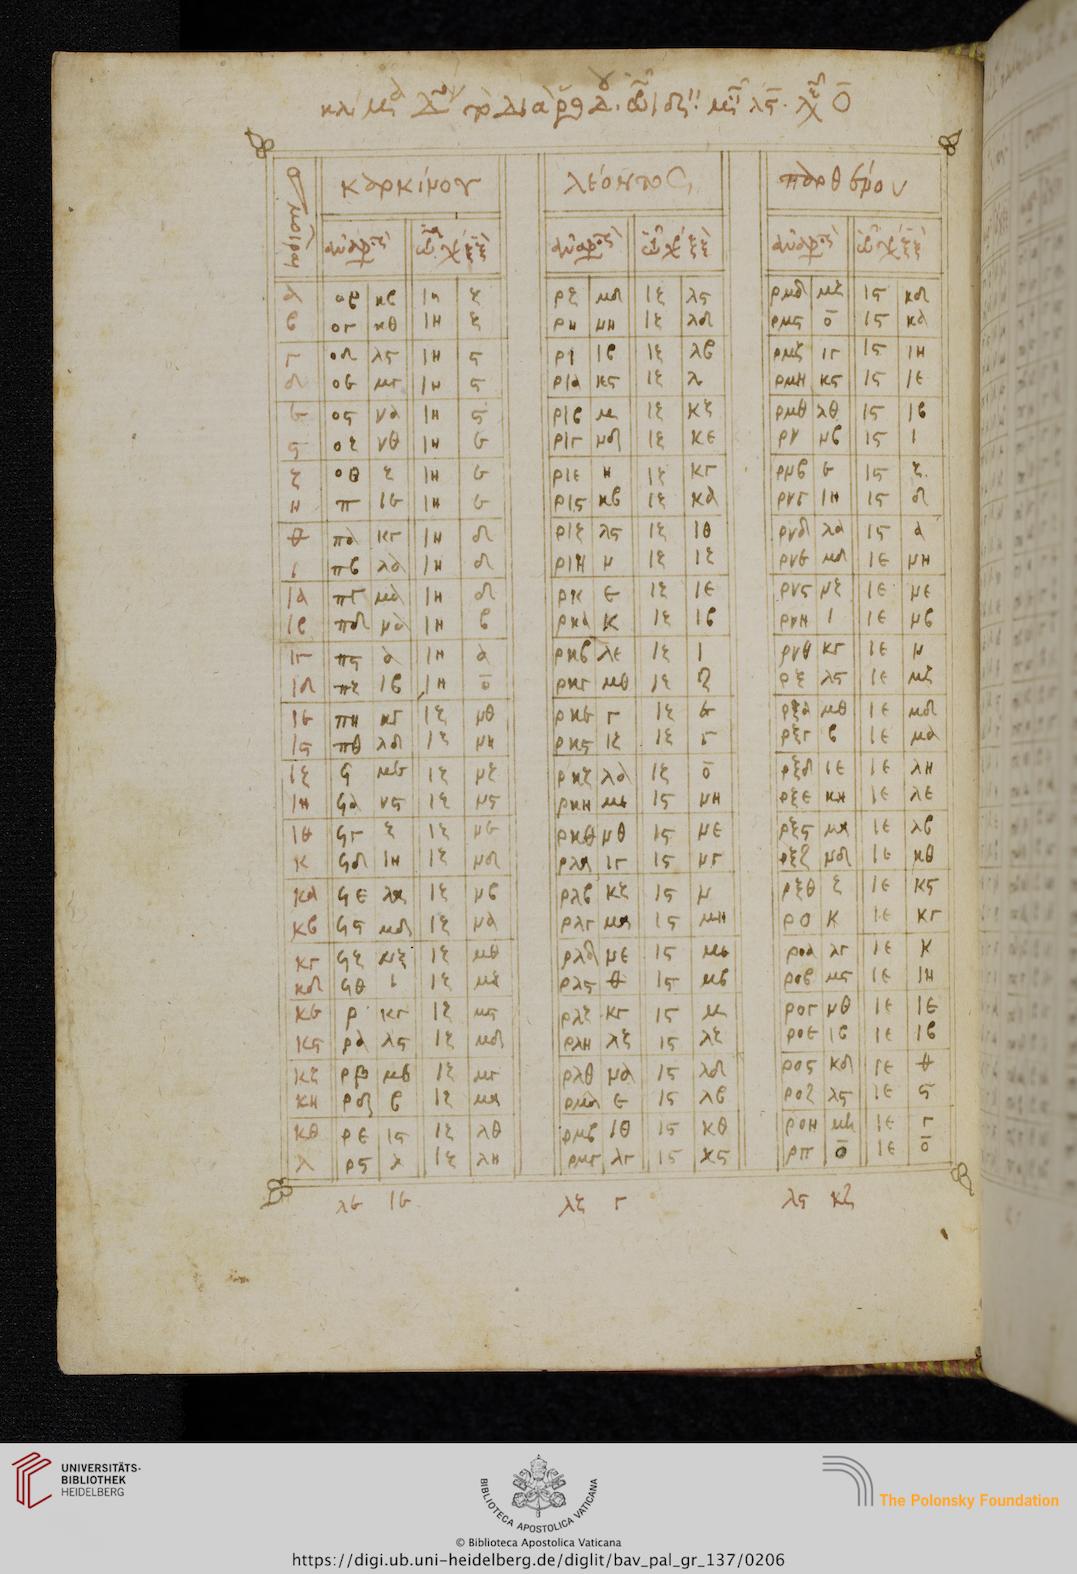 καρκίνου λέοντος παρθένου
α οβ κβ ιη ζ ρζ μδ ιζ λς ρμδ μζ ις κδ
β ογ κθ ιη ζ ρη νη ιζ λδ ρμς ο̄ ις κα
γ οδ λς ιη ς ρι ιβ ιζ λβ ρμζ ιγ ις ιη
δ οε μγ ιη ς ρια κς ιζ λ ρμη κς ις ιε
ε ος να ιη ς ριβ μ ιζ κζ ρμθ λθ ις ιβ
ς οζ νθ ιη ε ριγ νδ ιζ κε ρν νβ ις ι
ζ οθ ζ ιη ε ριε η ιζ κγ ρνβ ε ις ζ
η π ιε ιη ε ρις κβ ιζ κα ρνγ ιη ις δ
θ πα κγ ιη δ ριζ λς ιζ ιθ ρνδ λα ις α
ι πβ λα ιη δ ριη ν ιζ ιζ ρνε μδ ιε νη
ια πγ μα ιη δ ρκ ε ιζ ιε ρνς νζ ιε νε
ιβ πδ να ιη β ρκα κ ιζ ιβ ρνη ι ιε νβ
ιγ πς α ιη α ρκβ λε ιζ ι ρνθ κγ ιε ν
ιδ πζ ιβ ιη ο̄ ρκγ μθ ιζ ζ ρξ λς ιε μζ
ιε πη κγ ιζ νθ ρκε γ ιζ ε ρξα μθ ιε μδ
ις πθ λδ ιζ νη ρκς ιζ ιζ γ ρξγ β ιε μα
ιζ ϟ με ιζ νζ ρκζ λα ιζ ο̄ ρξδ ιε ιε λη
ιη ϟα νς ιζ νς ρκη με ις νη ρξε κη ιε λε
ιθ ϟγ ζ ιζ νε ρκθ νθ ις νε ρξς μα ιε λβ
κ ϟδ ιη ιζ νδ ρλα ιγ ις νγ ρξζ νδ ιε κθ
κα ϟε λα ιζ νβ ρλβ κζ ις ν ρξθ ζ ιε κς
κβ ϟς μδ ιζ να ρλγ μα ις μη ρο κ ιε κγ
κγ ϟζ νζ ιζ μθ ρλδ νε ις με ροα λγ ιε κ
κδ ϟθ ι ιζ μζ ρλς θ ις μβ ροβ μς ιε ιη
κε ρ κγ ιζ μς ρλζ κγ ις μ ρογ νθ ιε ιε
κς ρα λς ιζ μδ ρλη λζ ις λζ ροε ιβ ιε ιβ
κζ ρβ μθ ιζ μγ ρλθ να ις λδ ρος κδ ιε θ
κη ρδ β ιζ μα ρμα ε ις λβ ροζ λς ιε ς
κθ ρε ις ιζ λθ ρμβ ιθ ις κθ ροη μη ιε γ
λ ρς λ ιζ λη ρμγ λγ ις κς ρπ ο̄ ιε ο̄
λε ιε λζ γ λς κζ
UNIVERSITÄTS-
BIBLIOTHEK
HEIDELBERG
BIBLIOTECA APOSTOLICA VATICANA
The Polonsky Foundation
© Biblioteca Apostolica Vaticana
https://digi.ub.uni-heidelberg.de/diglit/bav_pal_gr_137/0206